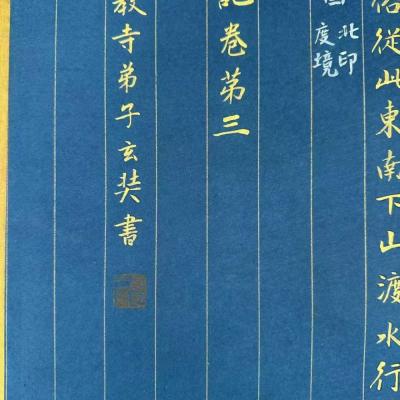 俗從此東南下山渡水行
北印
度境
記卷第三
教寺弟子玄奘書